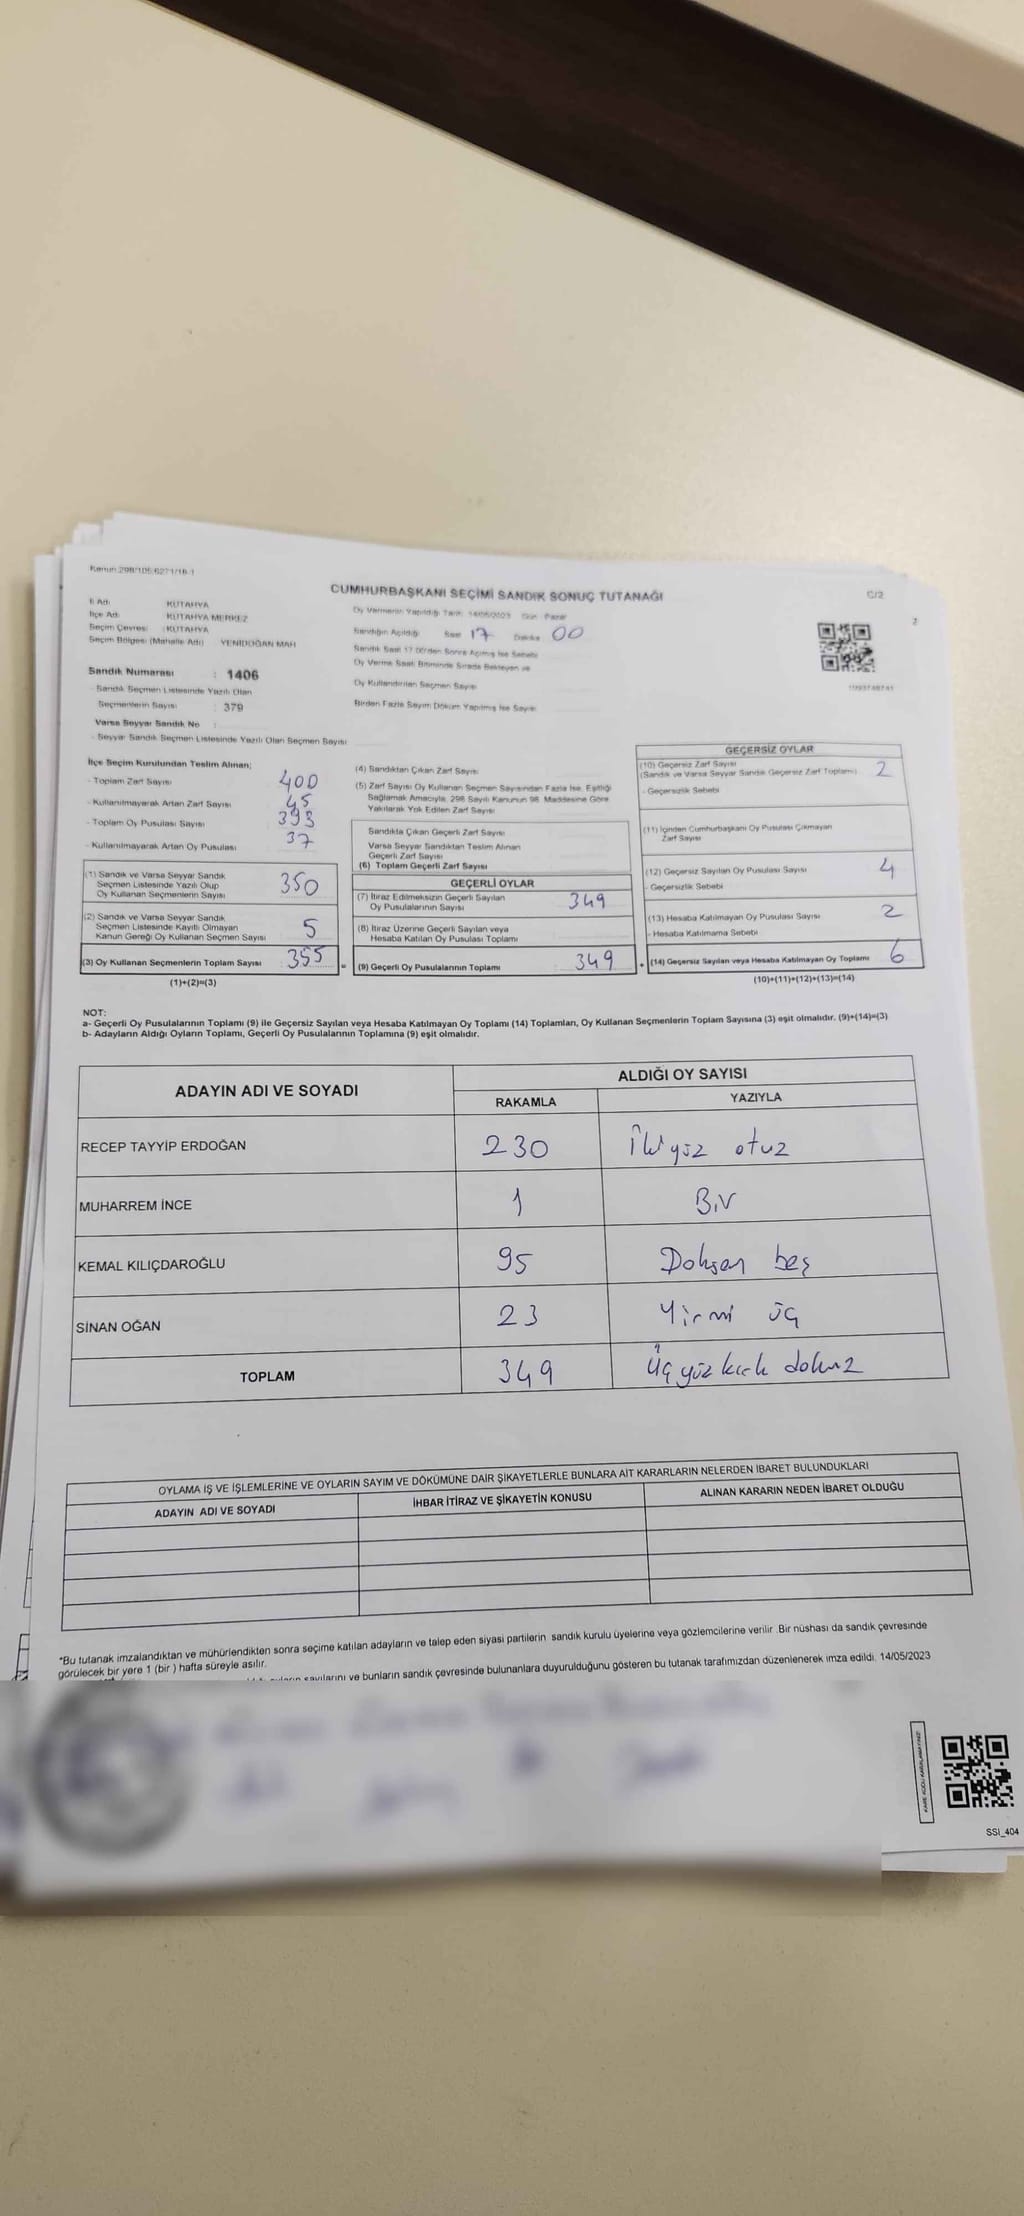 Kanun:298/105,6271/18-1
CUMHURBAŞKANI SEÇİMİ SANDIK SONUÇ TUTANAĞI
C/2
2
İl Adı: KÜTAHYA
İlçe Adı: KÜTAHYA MERKEZ
Seçim Çevresi: KÜTAHYA
Seçim Bölgesi (Mahalle Adı) YENİDOĞAN MAH
Oy Vermenin Yapıldığı Tarih: 14/05/2023 Gün: Pazar
Sandığın Açıldığı Saat 17 Dakika 00
Sandık Saat 17:00'den Sonra Açılmış İse Sebebi
Oy Verme Saati Bitiminde Sırada Bekleyen ve
Oy Kullandırılan Seçmen Sayısı
Birden Fazla Sayım Döküm Yapılmış İse Sayısı:
Sandık Numarası : 1406
- Sandık Seçmen Listesinde Yazılı Olan
Seçmenlerin Sayısı : 379
Varsa Seyyar Sandık No :
- Seyyar Sandık Seçmen Listesinde Yazılı Olan Seçmen Sayısı:
İlçe Seçim Kurulundan Teslim Alınan;
- Toplam Zarf Sayısı 400
- Kullanılmayarak Artan Zarf Sayısı 45
- Toplam Oy Pusulası Sayısı 393
- Kullanılmayarak Artan Oy Pusulası 37
(1) Sandık ve Varsa Seyyar Sandık
Seçmen Listesinde Yazılı Olup
Oy Kullanan Seçmenlerin Sayısı 350
(2) Sandık ve Varsa Seyyar Sandık
Seçmen Listesinde Kayıtlı Olmayan
Kanun Gereği Oy Kullanan Seçmen Sayısı 5
(3) Oy Kullanan Seçmenlerin Toplam Sayısı : 355
(1)+(2)=(3)
(4) Sandıktan Çıkan Zarf Sayısı
(5) Zarf Sayısı Oy Kullanan Seçmen Sayısından Fazla İse, Eşitliği
Sağlamak Amacıyla, 298 Sayılı Kanunun 98. Maddesine Göre
Yakılarak Yok Edilen Zarf Sayısı
Sandıkta Çıkan Geçerli Zarf Sayısı
Varsa Seyyar Sandıktan Teslim Alınan
Geçerli Zarf Sayısı
(6) Toplam Geçerli Zarf Sayısı
GEÇERLİ OYLAR
(7) İtiraz Edilmeksizin Geçerli Sayılan
Oy Pusulalarının Sayısı 349
(8) İtiraz Üzerine Geçerli Sayılan veya
Hesaba Katılan Oy Pusulası Toplamı
= (9) Geçerli Oy Pusulalarının Toplamı 349
GEÇERSİZ OYLAR
(10) Geçersiz Zarf Sayısı
(Sandık ve Varsa Seyyar Sandık Geçersiz Zarf Toplamı) 2
- Geçersizlik Sebebi
(11) İçinden Cumhurbaşkanı Oy Pusulası Çıkmayan
Zarf Sayısı
(12) Geçersiz Sayılan Oy Pusulası Sayısı 4
- Geçersizlik Sebebi
(13) Hesaba Katılmayan Oy Pusulası Sayısı 2
- Hesaba Katılmama Sebebi
+ (14) Geçersiz Sayılan veya Hesaba Katılmayan Oy Toplamı 6
(10)+(11)+(12)+(13)=(14)
NOT:
a- Geçerli Oy Pusulalarının Toplamı (9) ile Geçersiz Sayılan veya Hesaba Katılmayan Oy Toplamı (14) Toplamları, Oy Kullanan Seçmenlerin Toplam Sayısına (3) eşit olmalıdır. (9)+(14)=(3)
b- Adayların Aldığı Oyların Toplamı, Geçerli Oy Pusulalarının Toplamına (9) eşit olmalıdır.
ADAYIN ADI VE SOYADI ALDIĞI OY SAYISI
RAKAMLA YAZIYLA
RECEP TAYYİP ERDOĞAN 230 İkiyüz otuz
MUHARREM İNCE 1 Bir
KEMAL KILIÇDAROĞLU 95 Doksan beş
SİNAN OĞAN 23 Yirmi üç
TOPLAM 349 Üçyüz kırk dokuz
OYLAMA İŞ VE İŞLEMLERİNE VE OYLARIN SAYIM VE DÖKÜMÜNE DAİR ŞİKAYETLERLE BUNLARA AİT KARARLARIN NELERDEN İBARET BULUNDUKLARI
ADAYIN ADI VE SOYADI İHBAR İTİRAZ VE ŞİKAYETİN KONUSU ALINAN KARARIN NEDEN İBARET OLDUĞU
*Bu tutanak imzalandıktan ve mühürlendikten sonra seçime katılan adayların ve talep eden siyasi partilerin sandık kurulu üyelerine veya gözlemcilerine verilir .Bir nüshası da sandık çevresinde
görülecek bir yere 1 (bir ) hafta süreyle asılır.
sayılarını ve bunların sandık çevresinde bulunanlara duyurulduğunu gösteren bu tutanak tarafımızdan düzenlenerek imza edildi. 14/05/2023
KARE KODU KARALAMAYINIZ
SSI_404